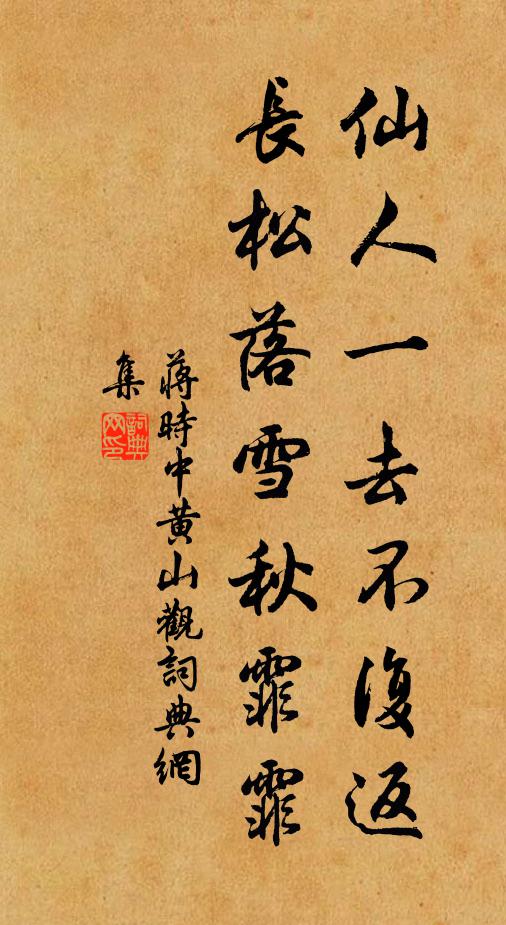 仙人一去不復返
長松落雪秋霏霏
蔣時中黃山觀詞典網
集
詞典
网印